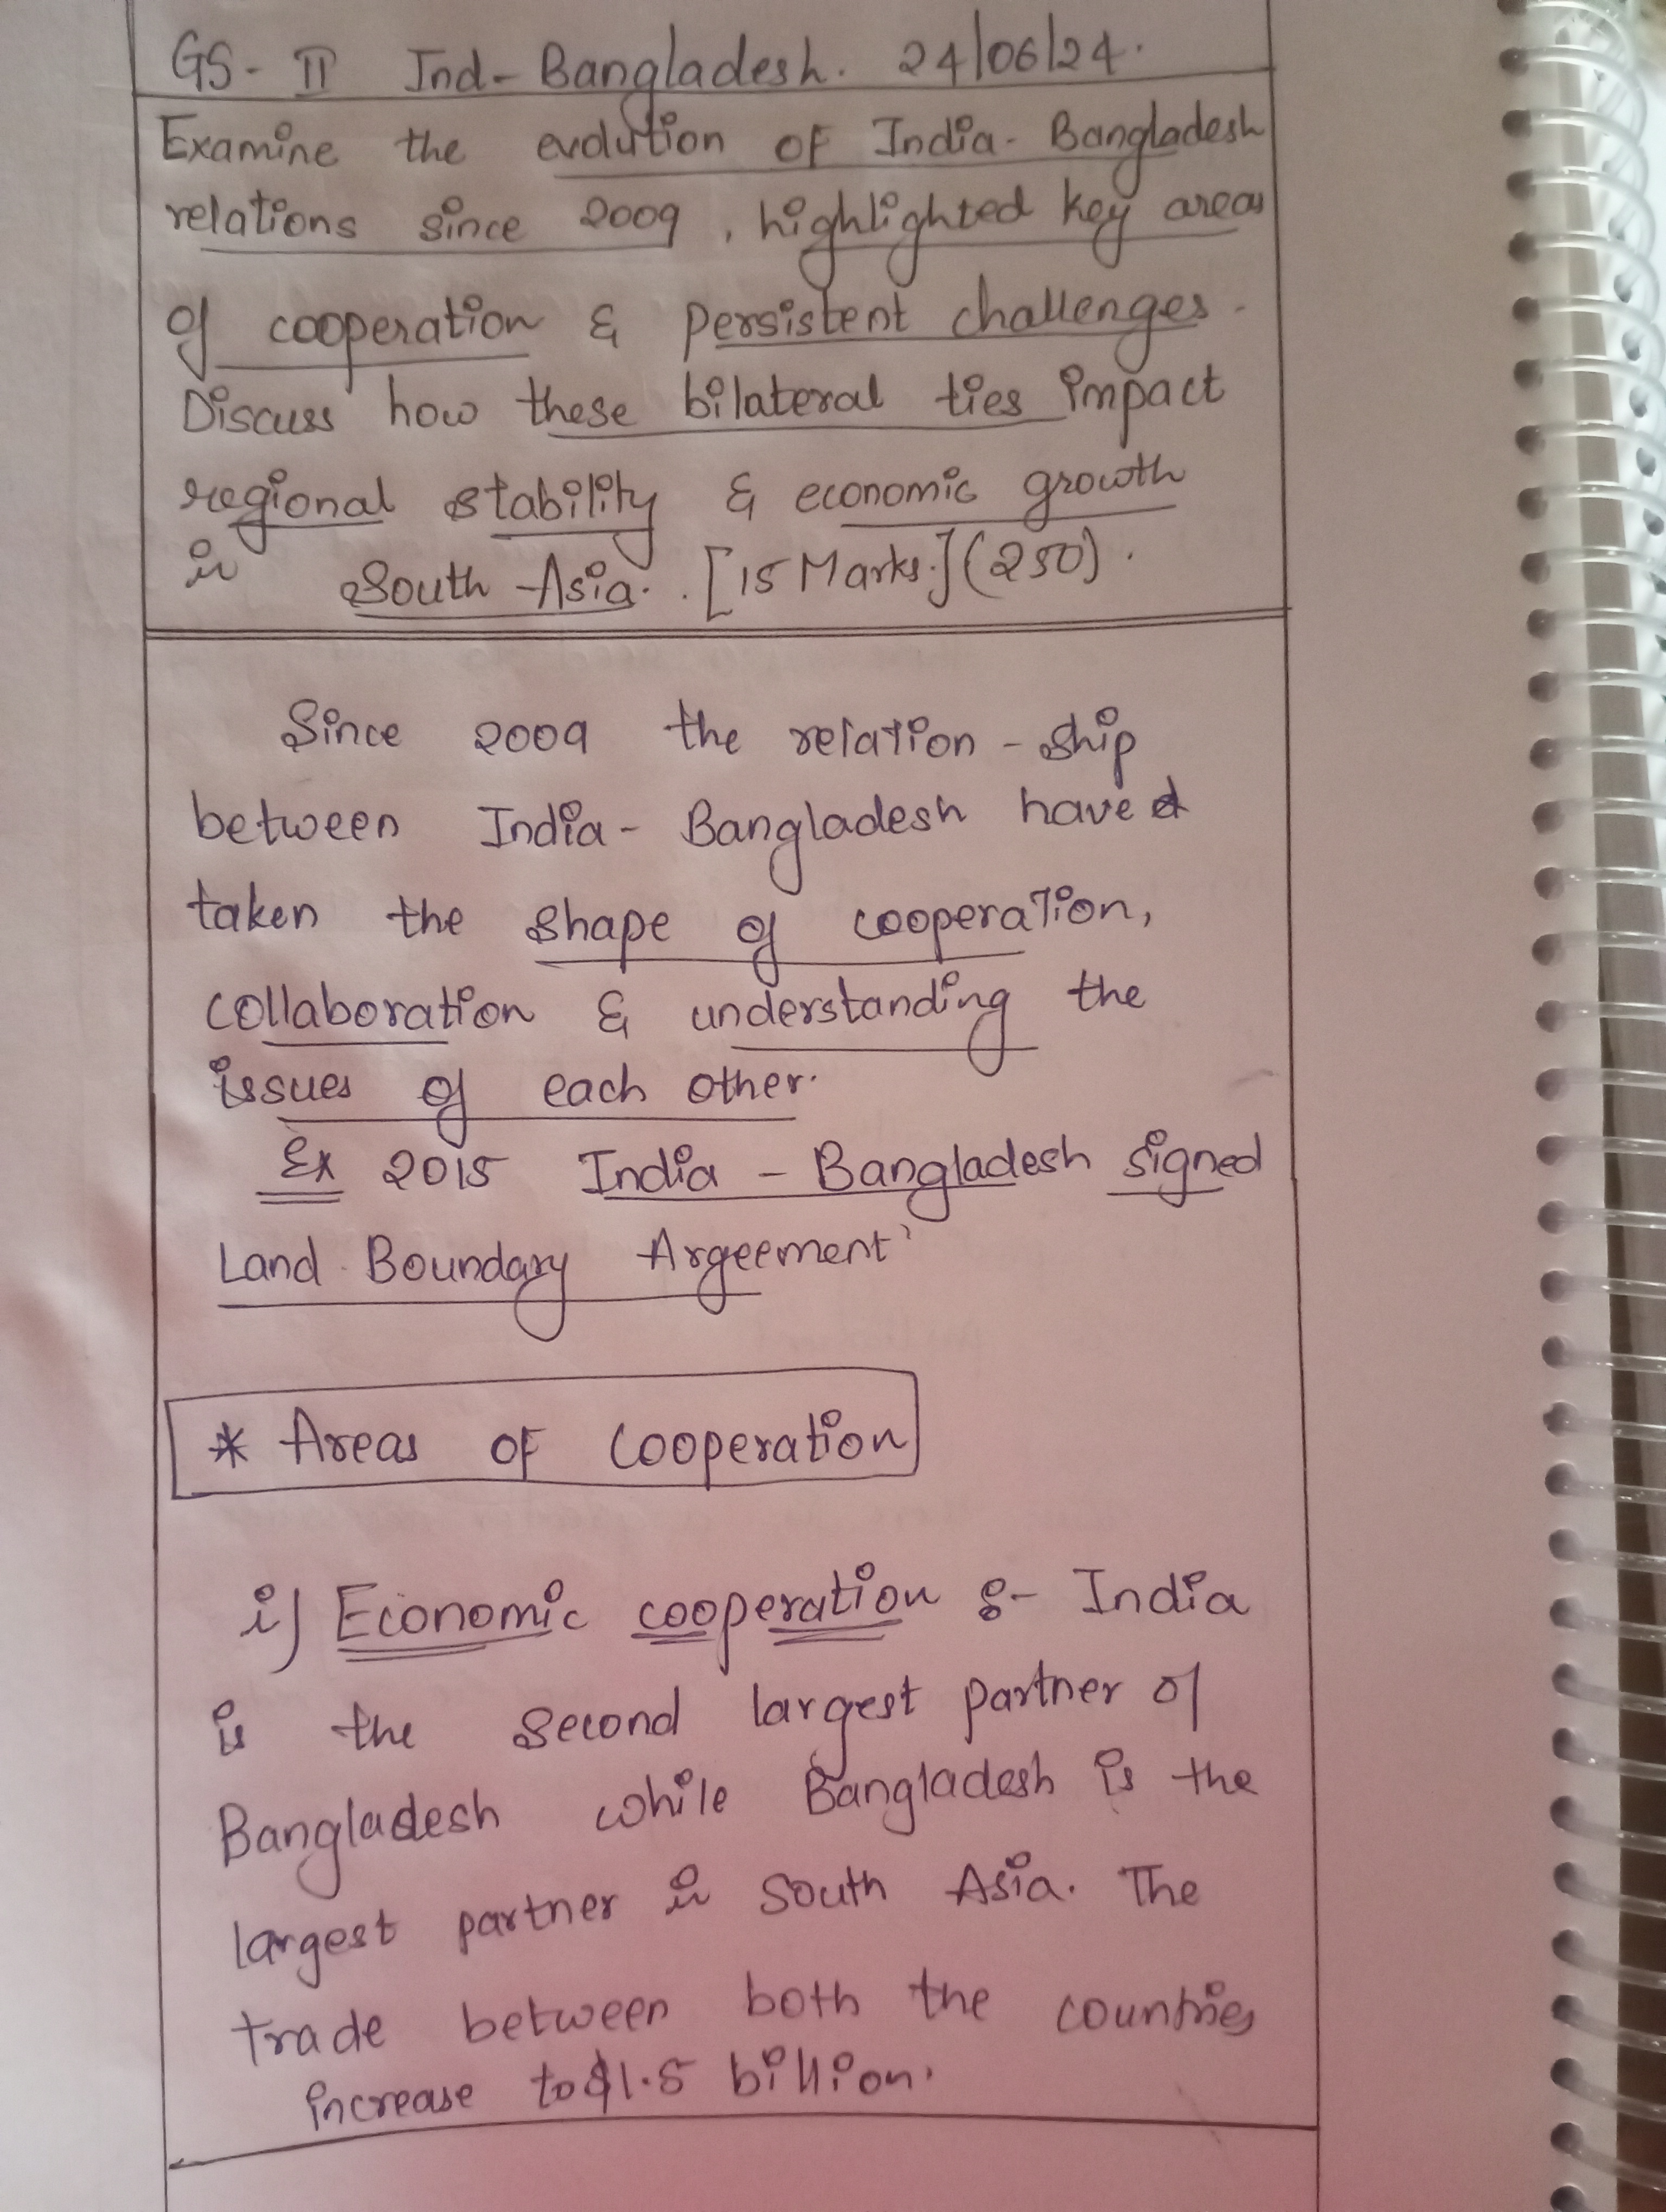 GS- II Ind- Bangladesh. 24/06/24.
Examine the evolution of India- Bangladesh
relations since 2009, highlighted key areas
of cooperation & persistent challenges.
Discuss how these bilateral ties impact
regional stability & economic growth
in South Asia. [15 Marks.] (250).
Since 2009 the relation-ship
between India- Bangladesh have
taken the shape of cooperation,
collaboration & understanding the
issues of each other.
Ex 2015 India - Bangladesh signed
Land Boundary Argeement
* Areas of Cooperation
i) Economic cooperation :- India
is the second largest partner of
Bangladesh while Bangladesh is the
largest partner in South Asia. The
trade between both the countries
increase to $1.5 billion.